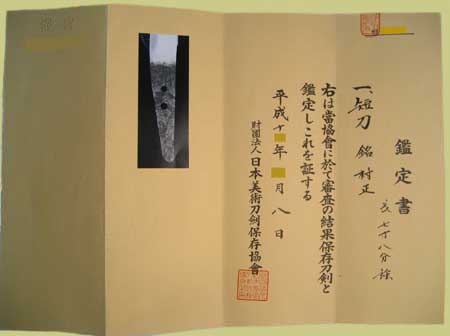 鑑定書
一、短刀 銘 村正
長 七寸八分餘
右は當協會に於て審査の結果保存刀剣と
鑑定しこれを証する
平成十 年 月八日
財團法人 日本美術刀剣保存協會